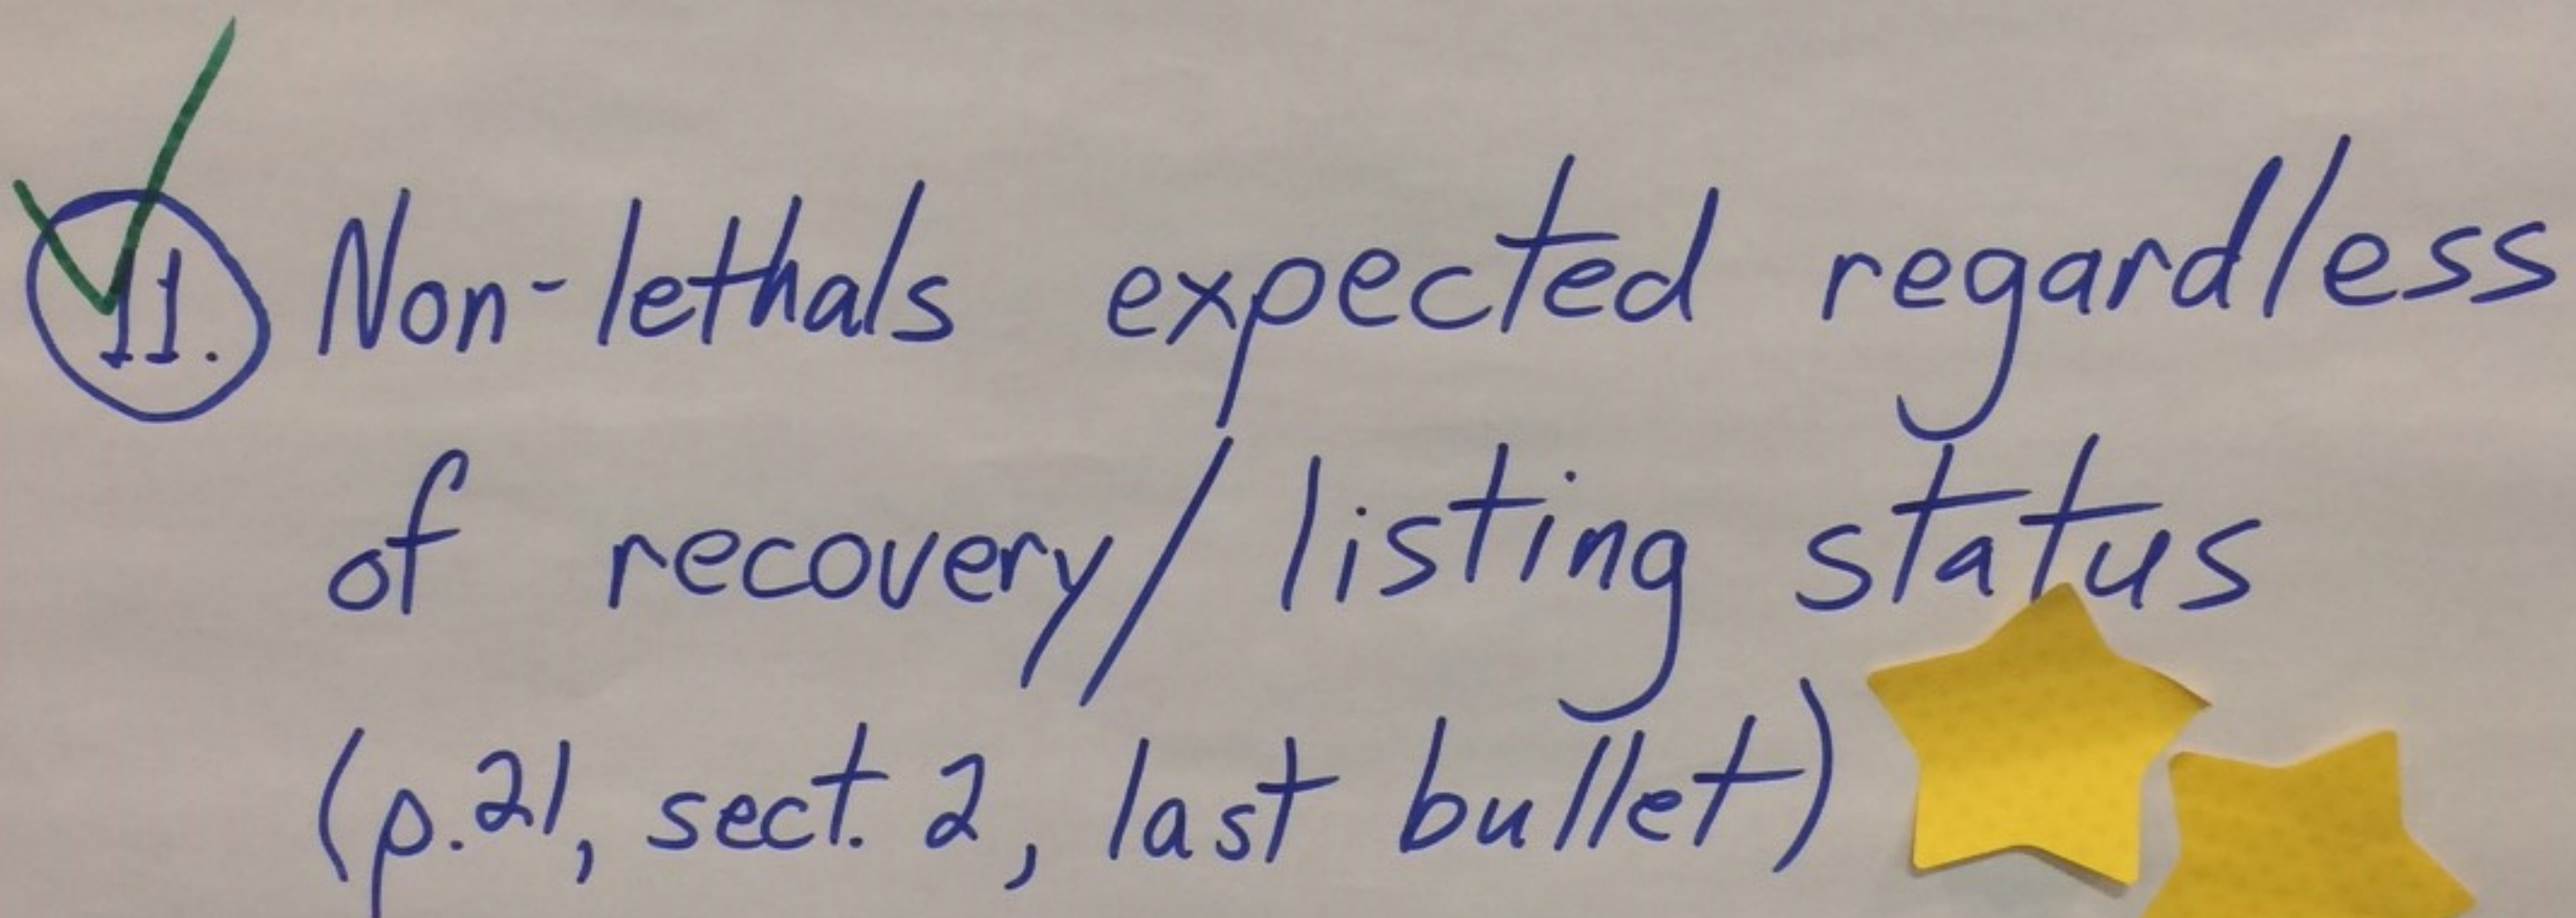 11. Non-lethals expected regardless
of recovery/listing status
(p.21, sect. 2, last bullet)